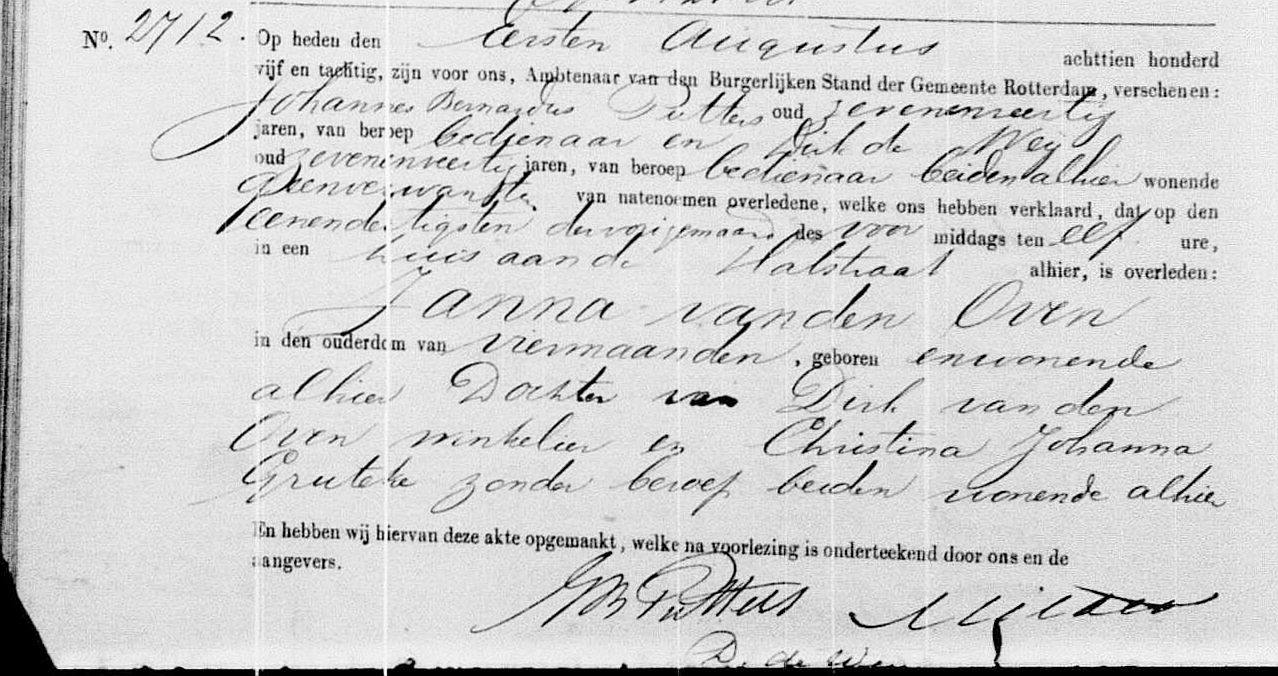 No. 2712. Op heden den Eersten Augustus achttien honderd
vijf en tachtig, zijn voor ons, Ambtenaar van den Burgerlijken Stand der Gemeente Rotterdam, verschenen:
Johannes Bernardus Putters oud zevenenveertig
jaren, van beroep bedienaar en Dirk de Weij
oud zevenenveertig jaren, van beroep bedienaar beiden alhier wonende
Geenverwanten van natenoemen overledene, welke ons hebben verklaard, dat op den
eenendertigsten der vorige maand des voor middags ten elf ure,
in een huis aan de Halstraat alhier, is overleden:
Janna van den Oven
in den ouderdom van viermaanden, geboren en wonende
alhier Dochter van Dirk van den
Oven winkelier en Christina Johanna
Gruteke zonder beroep beiden wonende alhier
En hebben wij hiervan deze akte opgemaakt, welke na voorlezing is onderteekend door ons en de
aangevers.
JB Putters
D. de Weij